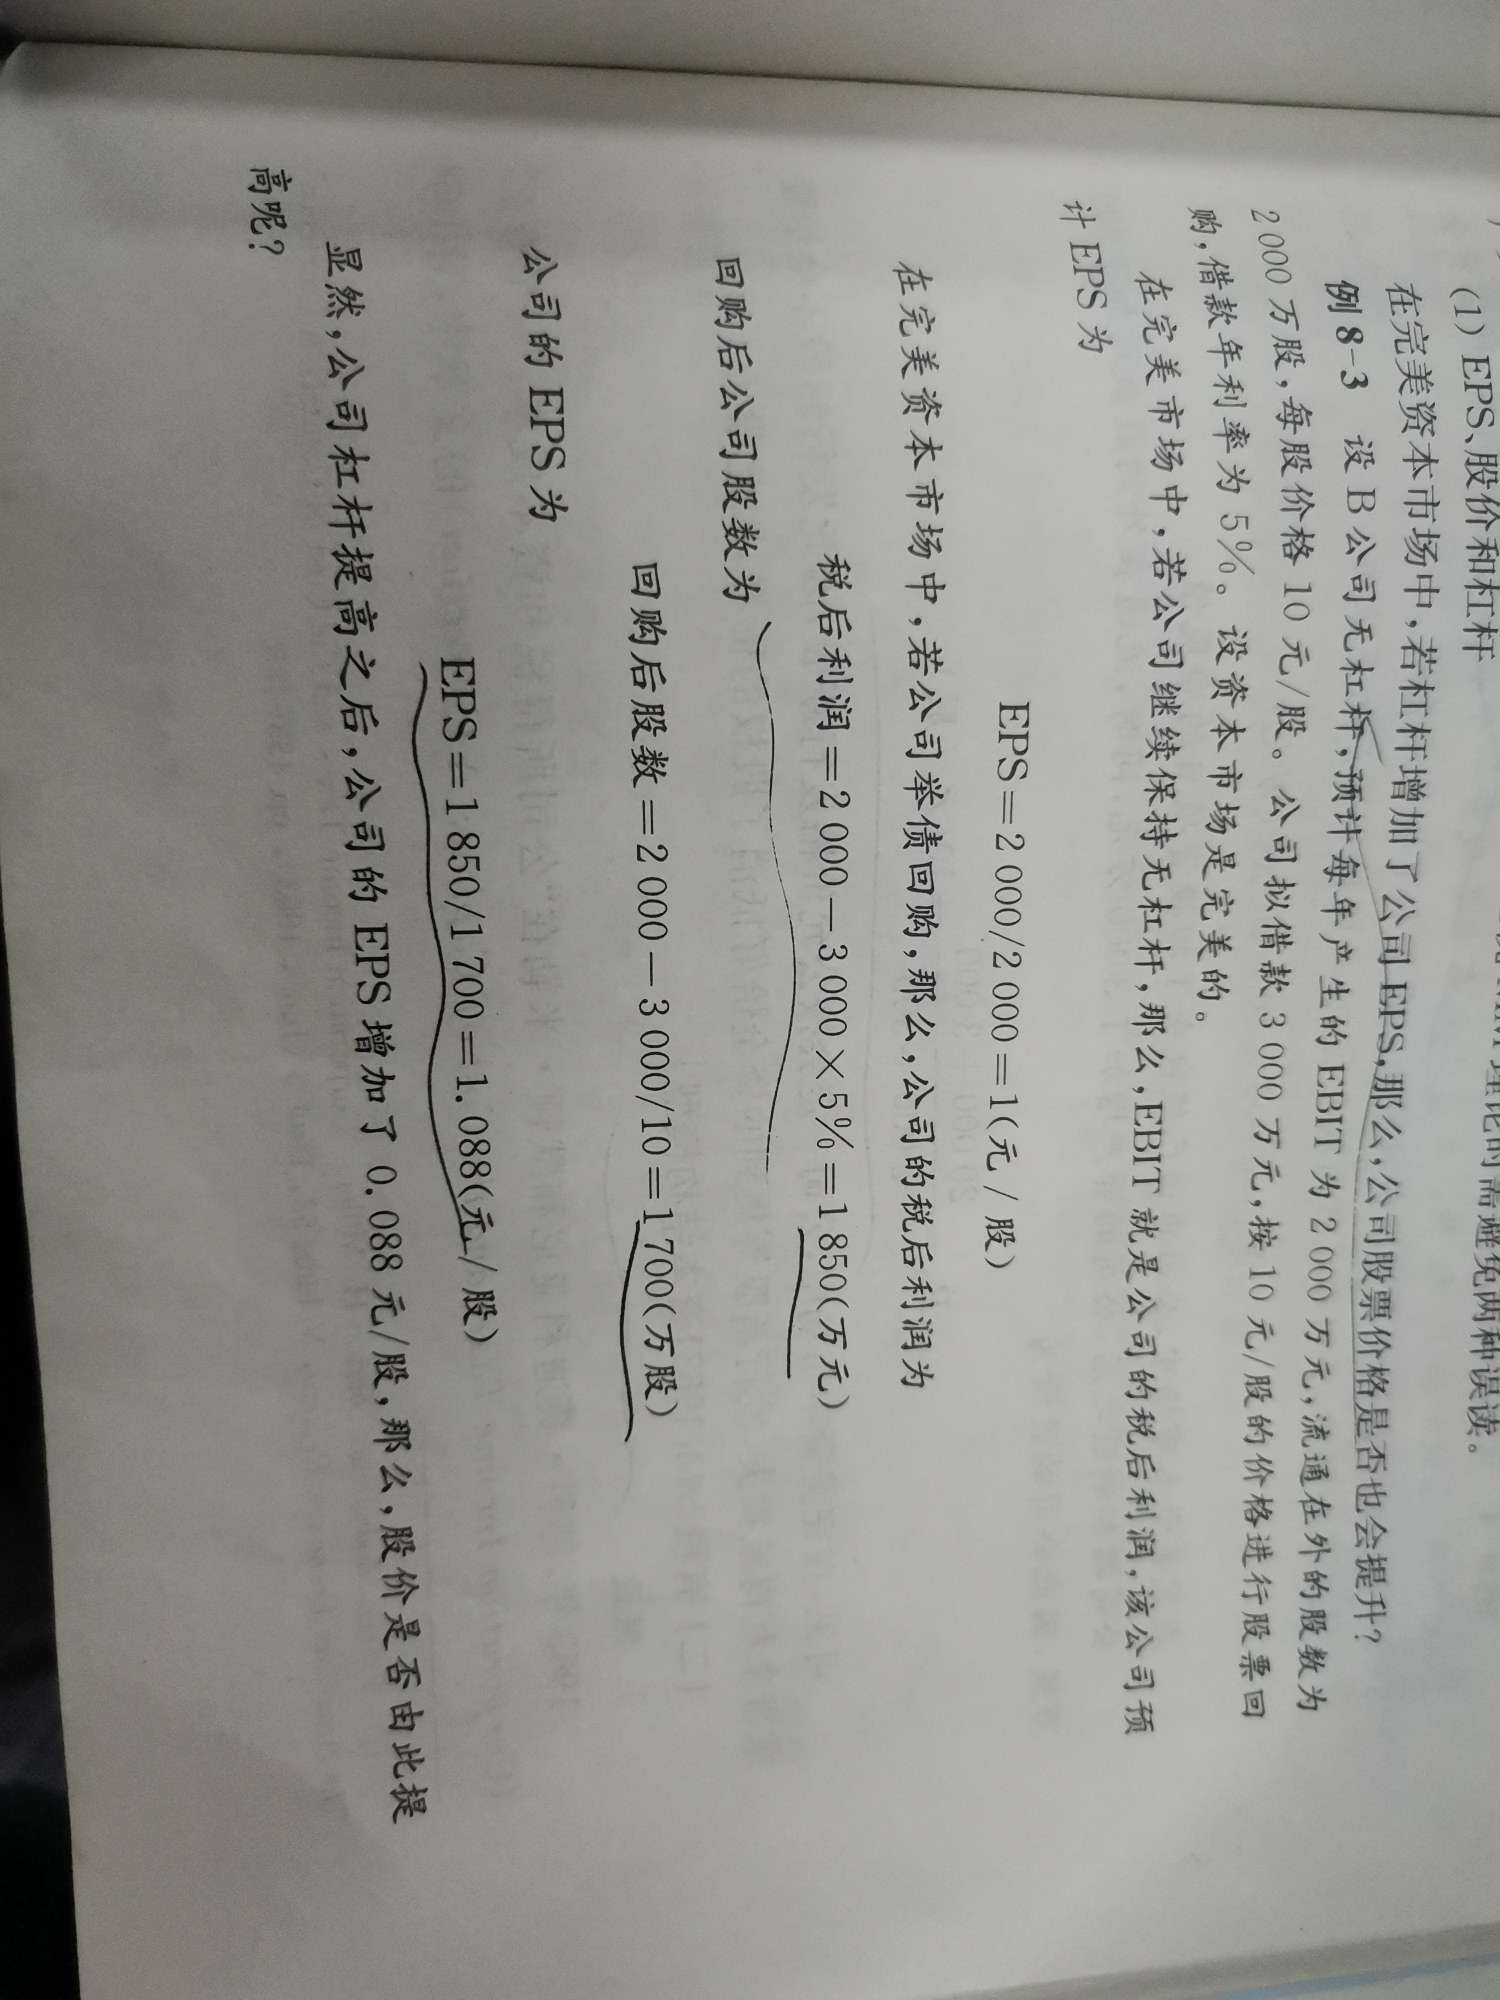 (1) EPS、股价和杠杆
在完美资本市场中,若杠杆增加了公司EPS,那么,公司股票价格是否也会提升?
例 8-3 设 B 公司无杠杆,预计每年产生的 EBIT 为 2 000 万元,流通在外的股数为
2 000 万股,每股价格 10 元/股。公司拟借款 3 000 万元,按 10 元/股的价格进行股票回
购,借款年利率为 5%。设资本市场是完美的。
在完美市场中,若公司继续保持无杠杆,那么,EBIT 就是公司的税后利润,该公司预
计 EPS 为
EPS=2 000/2 000=1(元/股)
在完美资本市场中,若公司举债回购,那么,公司的税后利润为
税后利润=2 000-3 000×5%=1 850(万元)
回购后公司股数为
回购后股数=2 000-3 000/10=1 700(万股)
公司的 EPS 为
EPS=1 850/1 700=1.088(元/股)
显然,公司杠杆提高之后,公司的 EPS 增加了 0.088 元/股,那么,股价是否由此提
高呢?